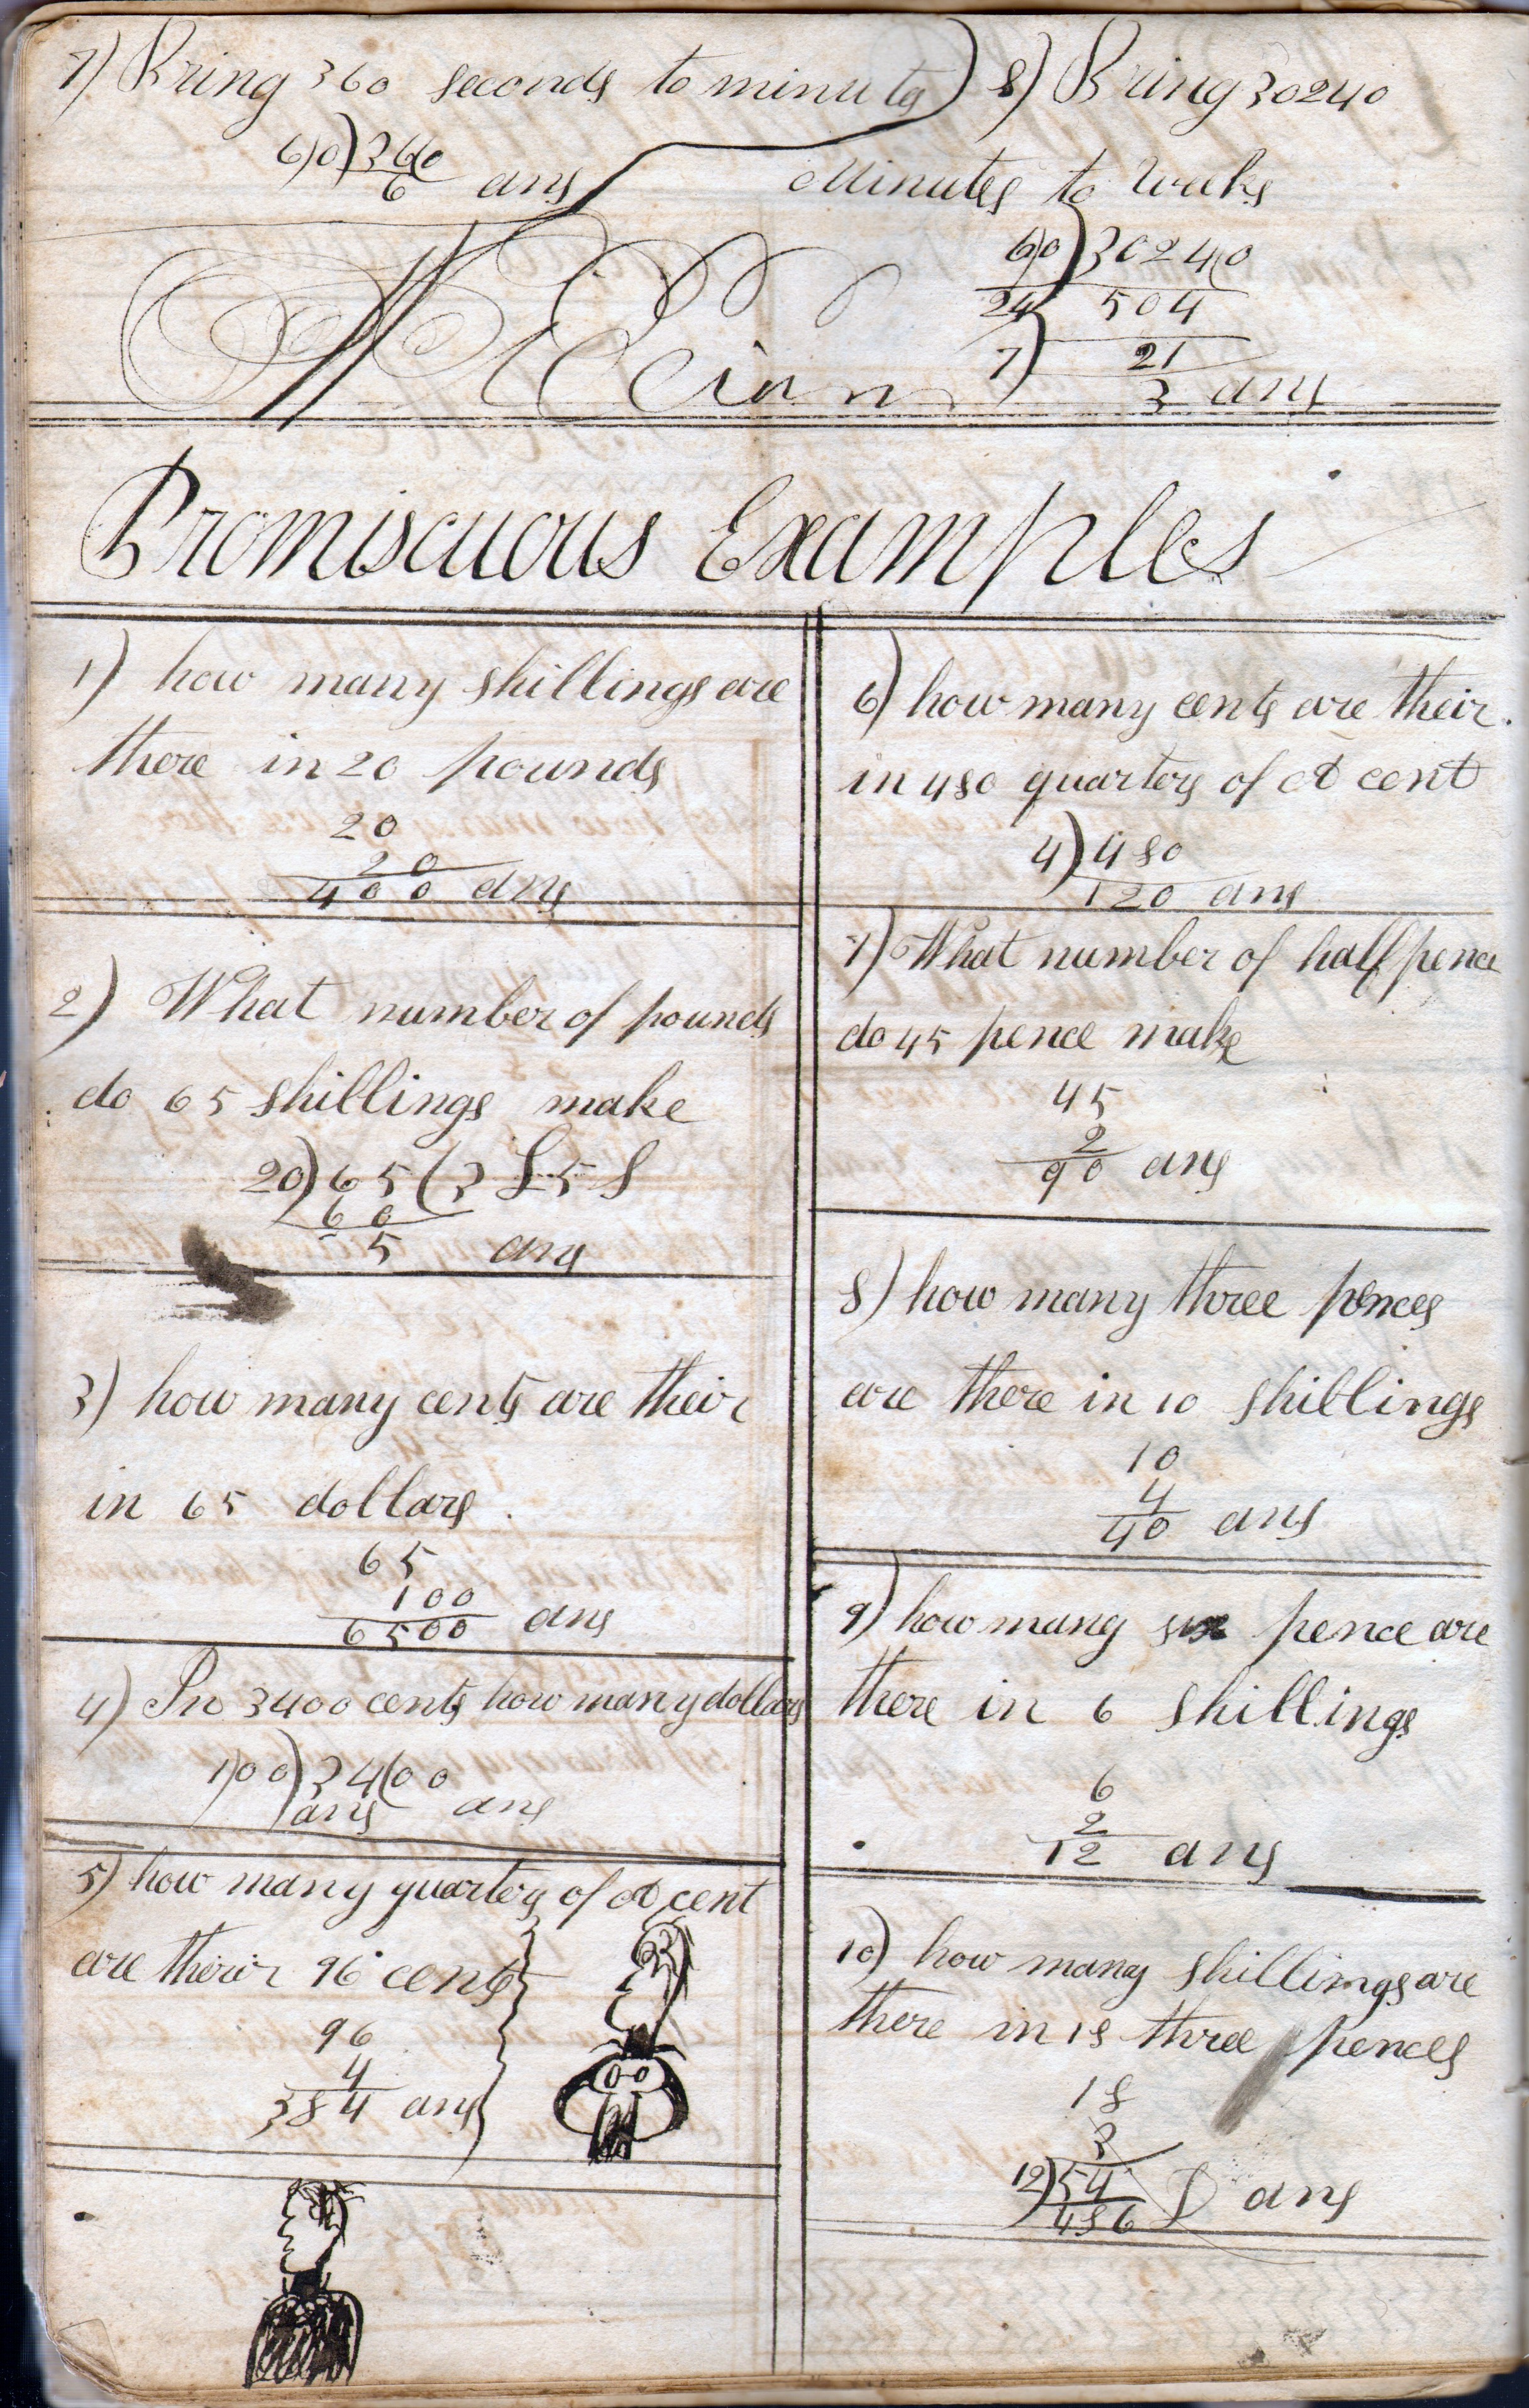 7) Bring 360 seconds to minuts
6)0)36(0
6 ans
8) Bring 30240
Minutes to Weeks
6)0)3024(0
24) 504
7) 21
3 ans
Promiscuous Examples
1) how many shillings are
there in 20 pounds
20
20
400 ans
2) What number of pounds
do 65 shillings make
20)65(3 £ 5 S
60
5 ans
3) how many cents are their
in 65 dollars.
65
100
6500 ans
4) In 3400 cents how many dollars
1)00)34(00
ans ans
5) how many quarters of A cent
are their 96 cents
96
4
384 ans
6) how many cents are their.
in 480 quarters of A cent
4)480
120 ans
7) What number of half pence
do 45 pence make
45
2
90 ans
8) how many three pences
are there in 10 shillings
10
4
40 ans
9) how many six pence are
there in 6 shillings
6
2
12 ans
10) how many shillings are
there in 18 three pences
18
3
12)54
4S6 D ans